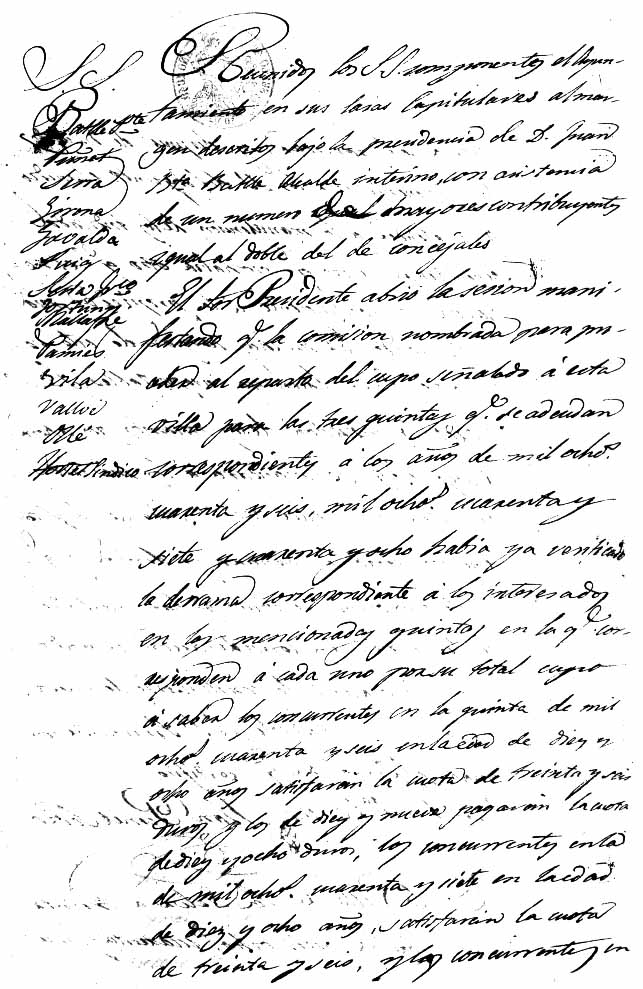 S. S.
Batlle Pte
Piñol
Serra
Girona
Gavaldá
Puig
Serra
Fortuny
Mallafré
Pamies
Vila
Vallvé
Olé
Hortet Sindico
Reunidos los S.S. componentes el Ayun-
tamiento en sus Casas Capitulares al mar-
gen descritos bajo la presidencia de D. Juan
Bta Batlle Alcalde interino, con asistencia
de un numero de mayores contribuyentes
igual al doble del de concejales
El Sor Presidente abrió la sesion mani-
festando q. la comision nombrada para pro-
ceder al reparto del cupo señalado á esta
villa para las tres quintas q. se adeudan
correspondientes á los años de mil ocho.s
cuarenta y seis, mil ocho.s cuarenta y
siete y cuarenta y ocho habia ya verificado
la derrama correspondiente á los interesados
en las mencionadas quintas en la q. cor-
responden á cada uno por su total cupo
á saber los concurrentes en la quinta de mil
ocho.s cuarenta y seis en la edad de diez y
ocho años satisfarán la cuota de treinta y seis
duros y los de diez y nueve pagarán la cuota
de diez y ocho duros, los concurrentes en la
de mil ocho.s cuarenta y siete en la edad
de diez y ocho años, satisfarán la cuota
de treinta y seis, y los concurrentes en